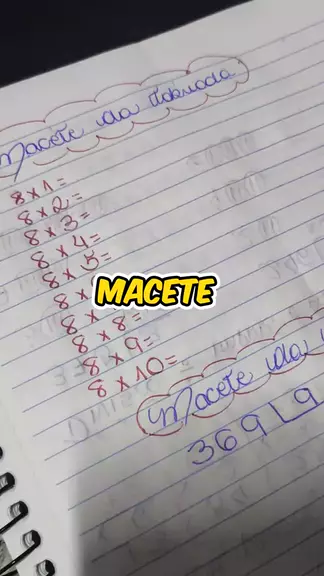 Macete da Tabuada
8 x 1 =
8 x 2 =
8 x 3 =
8 x 4 =
8 x 5 =
8 x
MACETE
8 x 8 =
8 x 9 =
8 x 10 =
Macete da
369 9